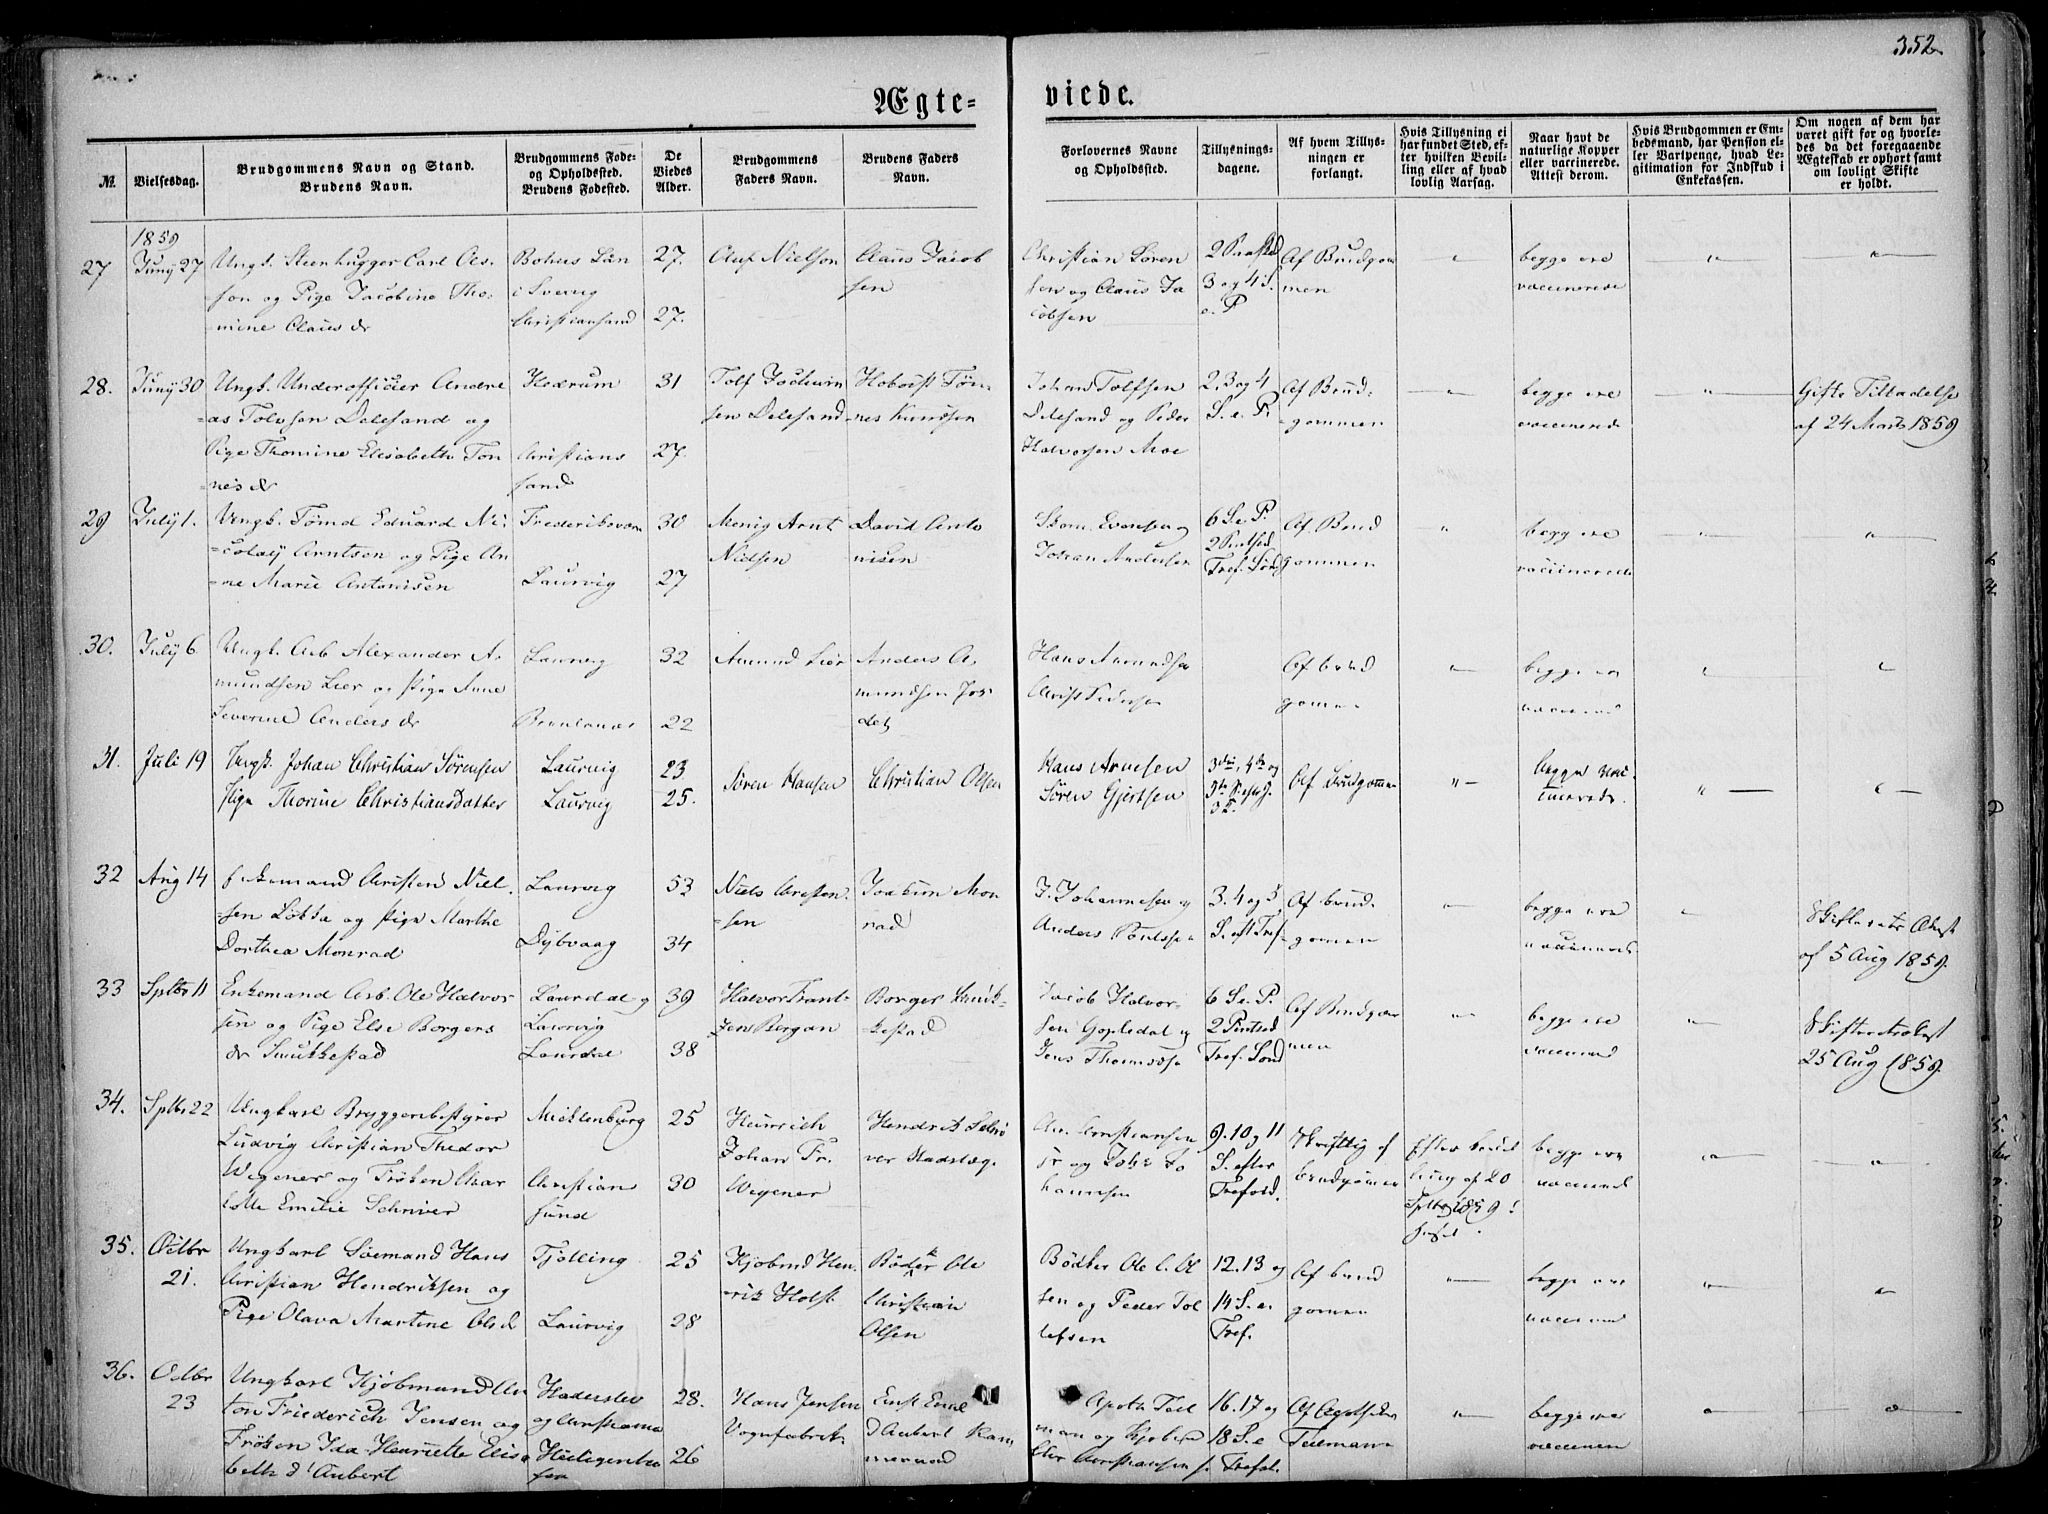 352
Ægte=
viede.
№.
Vielsesdag.
Brudgommens Navn og Stand.
Brudens Navn.
Brudgommens Føde-
og Opholdssted.
Brudens Fødested.
De
Viedes
Alder.
Brudgommens
Faders Navn.
Brudens Faders
Navn.
Forlovernes Navne
og Opholdssted.
Tillysnings-
dagene.
Af hvem Tillys-
ningen er
forlangt.
Hvis Tillysning ei
har fundet Sted, ef-
ter hvilken Bevil-
ling eller af hvad
lovlig Aarsag.
Naar havt de
naturlige Kopper
eller vaccinerede.
Attest derom.
Hvis Brudgommen er Em-
bedsmand, har Pension el-
ler Vartpenge, hvad Le-
gitimation for Indskud i
Enkekassen.
Om nogen af dem har
været gift før og hvorle-
des da det foregaaende
Ægteskab er ophørt samt
om lovligt Skifte
er holdt.
1859
27
Juny 27
Ungk. Steenhugger Carl Oes-
son og Pige Jacobine Tho-
mine Claus dr
Bohus Län
i Sverig
Christiansand
27.
27.
Oluf Nielsen
Claus Jacob
sen
Christian Sören
sen og Claus Ja
cobsen
3 og 4 S.
e. P
Af Brudgom
men
begge ere
vaccinerede
28.
Juny 30
Ungk. Underofficier Andre
=as Tolvsen Delesand og
Pige Thomine Elisabeth Ton
=nes dr
Hedrum
Christians
sand
31
27.
Tolf Jochum
sen Delesand
nes Knudsen
Johan Tolfsen
Delesand og Peder
Halvorsen Moe
2, 3 og 4
S. e. P.
Af Brud-
=gommen
begge ere
vaccinered
Gifte Tilladelse
af 24 Marts 1859
29
July 1.
Ungk. Tömd Eduard Ni-
=colay Arntsen og Pige An
=ne Marie Antonisen
Frederiksværn
Laurvig
30
27
Monig Arnt
Nielsen
David Anto
nisen
Evensen og
Johan Andersen
6 S. e. P.
2 Pintsed
Tref. Sönd
Af Brud
gommen
begg ere
vaccinerede
30.
July 6
Ungk. Arb Alexander A-
mundsen Lier og Pige Anne
Severine Anders dr
Laurvig
Brunlanæs
32
22
Amund Lier
Anders A-
mundsen
Hans Amundsen
Christ Pedersen
Af brud
gommen
begge ere
vaccinered
31.
Juli 19
Ungk. Johan Christian Sörensen
Pige Thorine Christiansdatter
Laurvig
Laurvig
23
25.
Sören Hansen
Christian Olsen
Hans Arnesen
Sören Gjertsen
Af Brudgommen
begge vac-
cinerede.
32
Aug 14
Enkemand Christen Niel-
=sen Lökka og Pige Marthe
Dorthea Monrad
Laurvig
Dybvaag
53
34
Niels Christen-
=sen
Joachim Mon
rad
J. Johannesen og
Anders
3. 4 og 5
S. eft Tref-
Af brud-
gommen
begge ere
vaccinered
Skifterets Attest
af 5 Aug 1859.
33
Sptbr 11
Enkemand Arb. Ole Halvor
sen og Pige Else Borgers
dr Smukkestad
Laurdal og
Laurvig
Laurdal
39
38
Halvor Frant-
zen Bergan
Borger Smuk-
kestad
Jacob Halvor-
sen Gopledal og
Jens Thomasse
6 S. e. P.
2 Pintsed
Tref. Sönd
Af Brudgom
men
begge ere
vaccinered
Skifte Attest
25 Aug 1859.
34.
Sptbr 22
Ungkarl Bryggeribestyrer
Ludvig Christian Thedor
Wegener og Fröken Char
lotte Emilie Schriver
Micklenburg
Christian
sund
25
30
Heinrich
Johan Fr.
Wegener
Hendrik Schri
ver Stadslæge
Christiansen
jr og Joh: Jo
hannsen
9. 10 og 11
S. efter
Trefold.
Skriftlig af
brudgommen
Efter bevil
ling af 20
Sptbr 1859
begge ere
vaccinered
35.
Octbr
21.
Ungkarl Söemand Hans
Christian Hendriksen og
Pige Olava Martine Ols dr
Tjölling
Laurvig
25
28
Kjöbmd Hen-
rik Holst
Bödker Ole
Christian
Olsen
Bödker Ole C. Ol
sen og Peder Tol
lefsen
12. 13 og
14 S. e.
Tref.
Af brud
gommen
begge ere
vaccinered
36.
Octbr
23
Ungkarl Kjöbmand An
ton Friederich Jensen og
Fröken Ida Henriette Elisa
beth d'Aubert
Haderslev
og Christiania
Heiligenha
fen
28.
26
Hans Jensen
Vognfabrik.
Ernst Emil
d'Aubert Kam
merraad
Apoth. Teil
man og Kjöbmd
Chr Christiansen
16. 17 og
18 S. e
Trefol.
Af Apotheker
Teilmann
begge ere
vaccineret